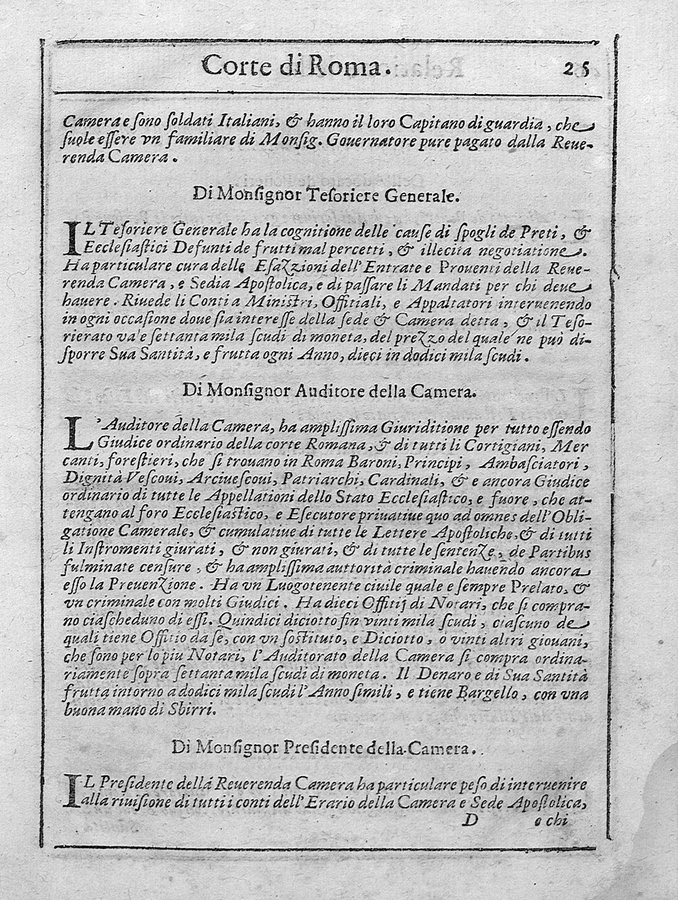 Corte di Roma. 25
Camera e ſono ſoldati Italiani, & hanno il loro Capitano di guardia, che
ſuole eſſere vn familiare di Monſig. Gouernatore pure pagato dalla Reue-
renda Camera.
Di Monſignor Teſoriere Generale.
IL Teſoriere Generale ha la cognitione delle cauſe di ſpogli de Preti, &
Eccleſiaſtici Defunti de frutti mal percetti, & illecita negotiatione.
Ha particulare cura delle Eſazzioni dell'Entrate e Prouenti della Reue-
renda Camera, e Sedia Apoſtolica, e di paſſare li Mandati per chi deue
hauere. Riuede li Conti a Miniſtri, Offitiali, e Appaltatori interuenendo
in ogni occaſione doue ſia intereſſe della ſede & Camera detta, & il Teſo-
rierato va e ſettanta mila ſcudi di moneta, del prezzo del quale ne può di-
ſporre Sua Santità, e frutta ogni Anno, dieci in dodici mila ſcudi.
Di Monſignor Auditore della Camera.
L'Auditore della Camera, ha ampliſſima Giuriditione per tutto eſſendo
Giudice ordinario della corte Romana, & di tutti li Cortigiani, Mer
canti, foreſtieri, che ſi trouano in Roma Baroni, Principi, Ambaſciatori,
Dignità Veſcoui, Arciueſcoui, Patriarchi, Cardinali, & e ancora Giudice
ordinario di tutte le Appellationi dello Stato Eccleſiaſtico, e fuore, che at-
tengano al foro Eccleſiaſtico, e Eſecutore priuatiue quo ad omnes dell'Obli-
gatione Camerale, & cumulatiue di tutte le Lettere Apoſtoliche, & di tutti
li Inſtromenti giurati, & non giurati, & di tutte le ſentenze, de Partibus
fulminate cenſure, & ha ampliſſima auttorità criminale hauendo ancora
eſſo la Preuenzione. Ha vn Luogotenente ciuile quale ſempre Prelato, &
vn criminale con molti Giudici. Ha dieci Offitij di Notari, che ſi compra-
no ciaſcheduno di eſſi. Quindici diciotto fin vinti mila ſcudi, ciaſcuno de
quali tiene Offitio da ſe, con vn ſoſtituto, e Diciotto, o vinti altri giouani,
che ſono per lo piu Notari, l'Auditorato della Camera ſi compra ordina-
riamente ſopra ſettanta mila ſcudi di moneta. Il Denaro e di Sua Santità
frutta intorno a dodici mila ſcudi l'Anno ſimili, e tiene Bargello, con vna
buona mano di Sbirri.
Di Monſignor Preſidente della Camera.
IL Preſidente della Reuerenda Camera ha particulare peſo di interuenire
alla riuiſione di tutti i conti dell'Erario della Camera e Sede Apoſtolica,
D e chi